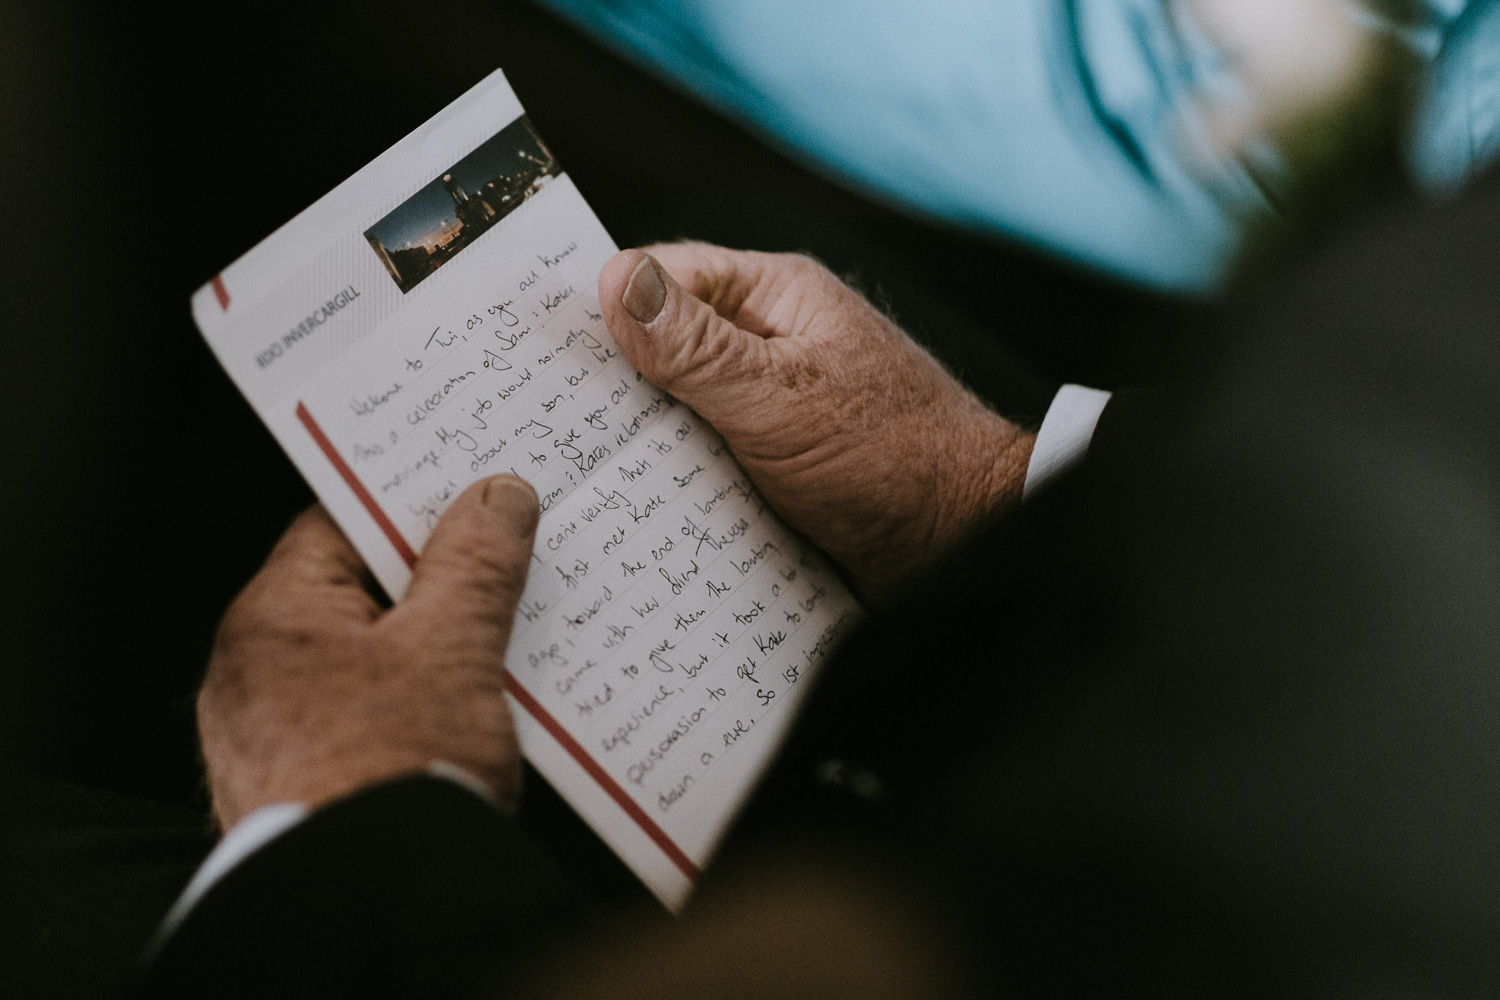 INVERCARGILL
Welcome to Tui, as you all know
this a celebration of Sam & Kates
marriage. My job would normally to
about my son, but
to give you all
Sam & Kates relationship
I can't verify that it's all
We first met Kate some
ago, toward the end of lambing
came with her friend Theresa
tried to give them the lambing
experience, but it took a lot
persuasion to get Kate to lamb
down a ewe, So 1st impression